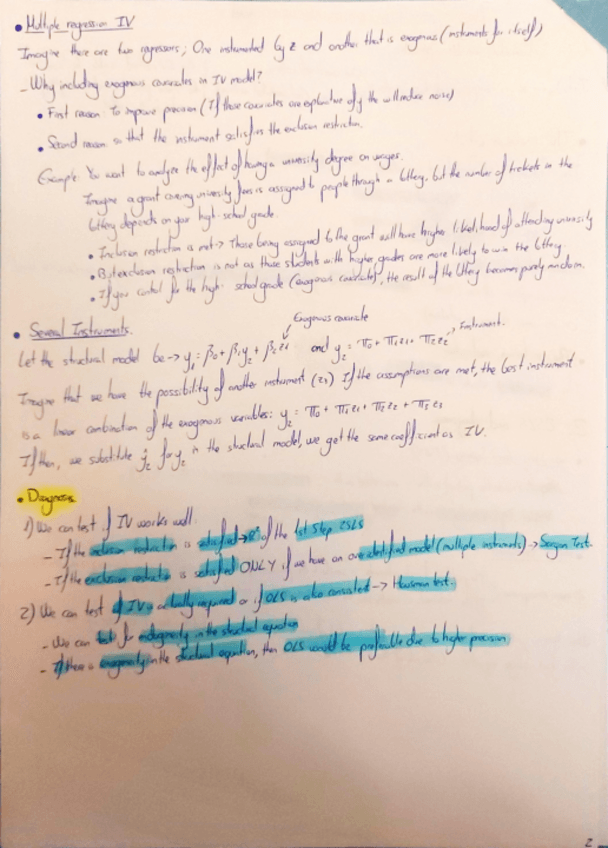 • Multiple regression IV
Imagine there are two regressors; One instrumented by z and another that is exogenous (instruments for itself)
- Why including exogenous covariates in IV model?
• First reason: To improve precision (If those covariates are explicative of y the will reduce noise)
• Second reason: so that the instrument satisfies the exclusion restriction.
Example: You want to analyze the effect of having a university degree on wages.
Imagine a grant covering university fees is assigned to people through a lottery, but the number of tickets in the
lottery depends on your high-school grade.
• Inclusion restriction is met -> Those being assigned to the grant will have higher likelihood of attending university
• But exclusion restriction is not as those students with higher grades are more likely to win the lottery
• If you control for the high-school grade (exogenous covariate), the result of the lottery becomes purely random.
• Several Instruments.
Exogenous covariate
Let the structural model be -> y₁ = β₀ + β₁y₂ + β₂z₁ and y₂ = π₀ + π₁z₁ + π₂z₂ Instrument.
Imagine that we have the possibility of another instrument (z₃) If the assumptions are met, the best instrument
is a linear combination of the exogenous variables: y₂ = π₀ + π₁z₁ + π₂z₂ + π₃z₃
If then, we substitute ŷ₂ for y₂ in the structural model, we get the same coefficient as IV.
• Diagnosis
1) We can test if IV works well.
- If the inclusion restriction is satisfied -> of the 1st Step 2SLS
- If the exclusion restriction is satisfied ONLY if we have an overidentified model (multiple instruments) -> Sargan Test.
2) We can test if IV is actually required or if OLS is also consistent -> Hausman test.
- We can test for endogeneity in the structural equation
- If there is exogeneity in the structural equation, then OLS would be preferable due to higher precision
2